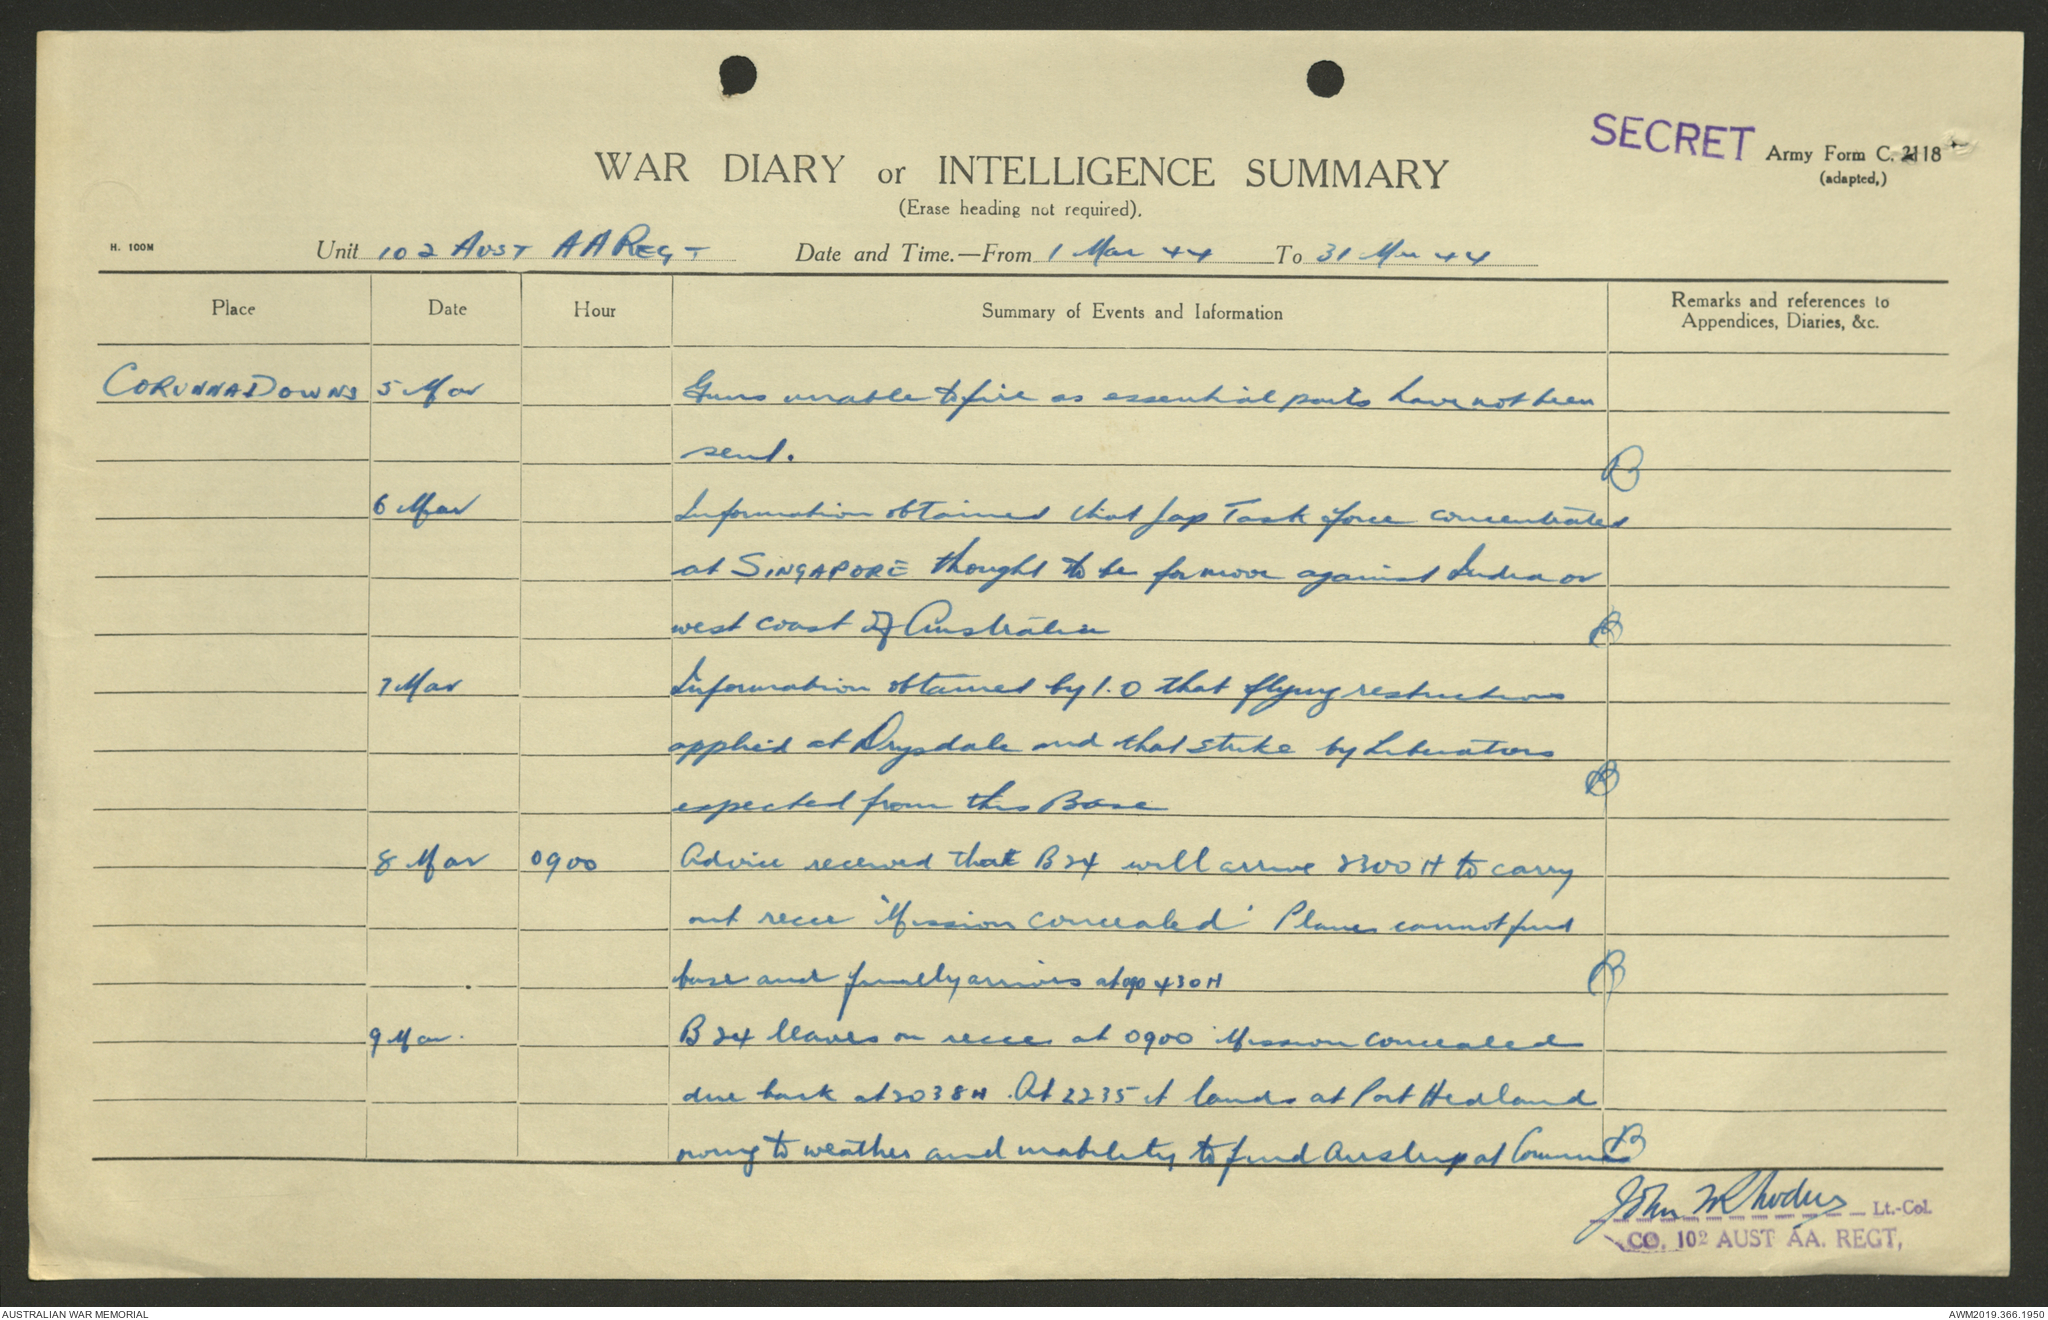 SECRET
Army Form C. 2118
(adapted,)
WAR DIARY or INTELLIGENCE SUMMARY
(Erase heading not required).
H. 100M
Unit 102 AUST AA REGT Date and Time.—From 1 Mar 44 To 31 Mar 44
Place Date Hour Summary of Events and Information Remarks and references to Appendices, Diaries, &c.
CORUNNA DOWNS 5 Mar Guns unable to fire as essential parts have not been
sent.
6 Mar Information obtained that Jap Task force concentrated
at SINGAPORE thought to be for move against India or
west coast of Australia
7 Mar Information obtained by I.O that flying restrictions
applied at Drysdale and that strike by Liberators
expected from this Base
8 Mar 0900 Advice received that B24 will arrive 2300 H to carry
out recce 'Mission concealed' Planes cannot find
base and finally arrives at 0430H
9 Mar. B24 leaves on recce at 0900 Mission concealed
due back at 2038H. At 2235 it lands at Port Hedland
owing to weather and inability to find airstrip at Corunna
John Rhodes Lt.-Col.
CO. 102 AUST AA. REGT,
AUSTRALIAN WAR MEMORIAL
AWM2019.366.1950